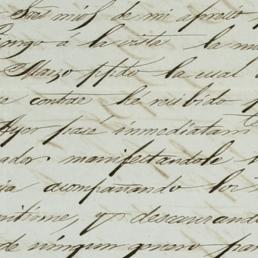 mio de mi apreso
á la vista la
Marzo ppdo la cual
contrae he recibido
Ayer pasé inmediatam
ador manifestandole
ia acompañando los
mitirme, y descurando
de ningun genero par